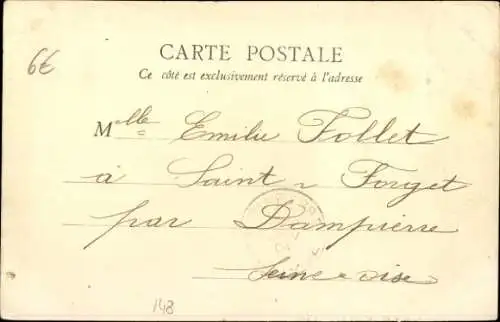 6€
CARTE POSTALE
Ce côté est exclusivement réservé à l'adresse
Mlle Emilie Follet
à Saint-Forget
par Dampierre
Seine & oise
148